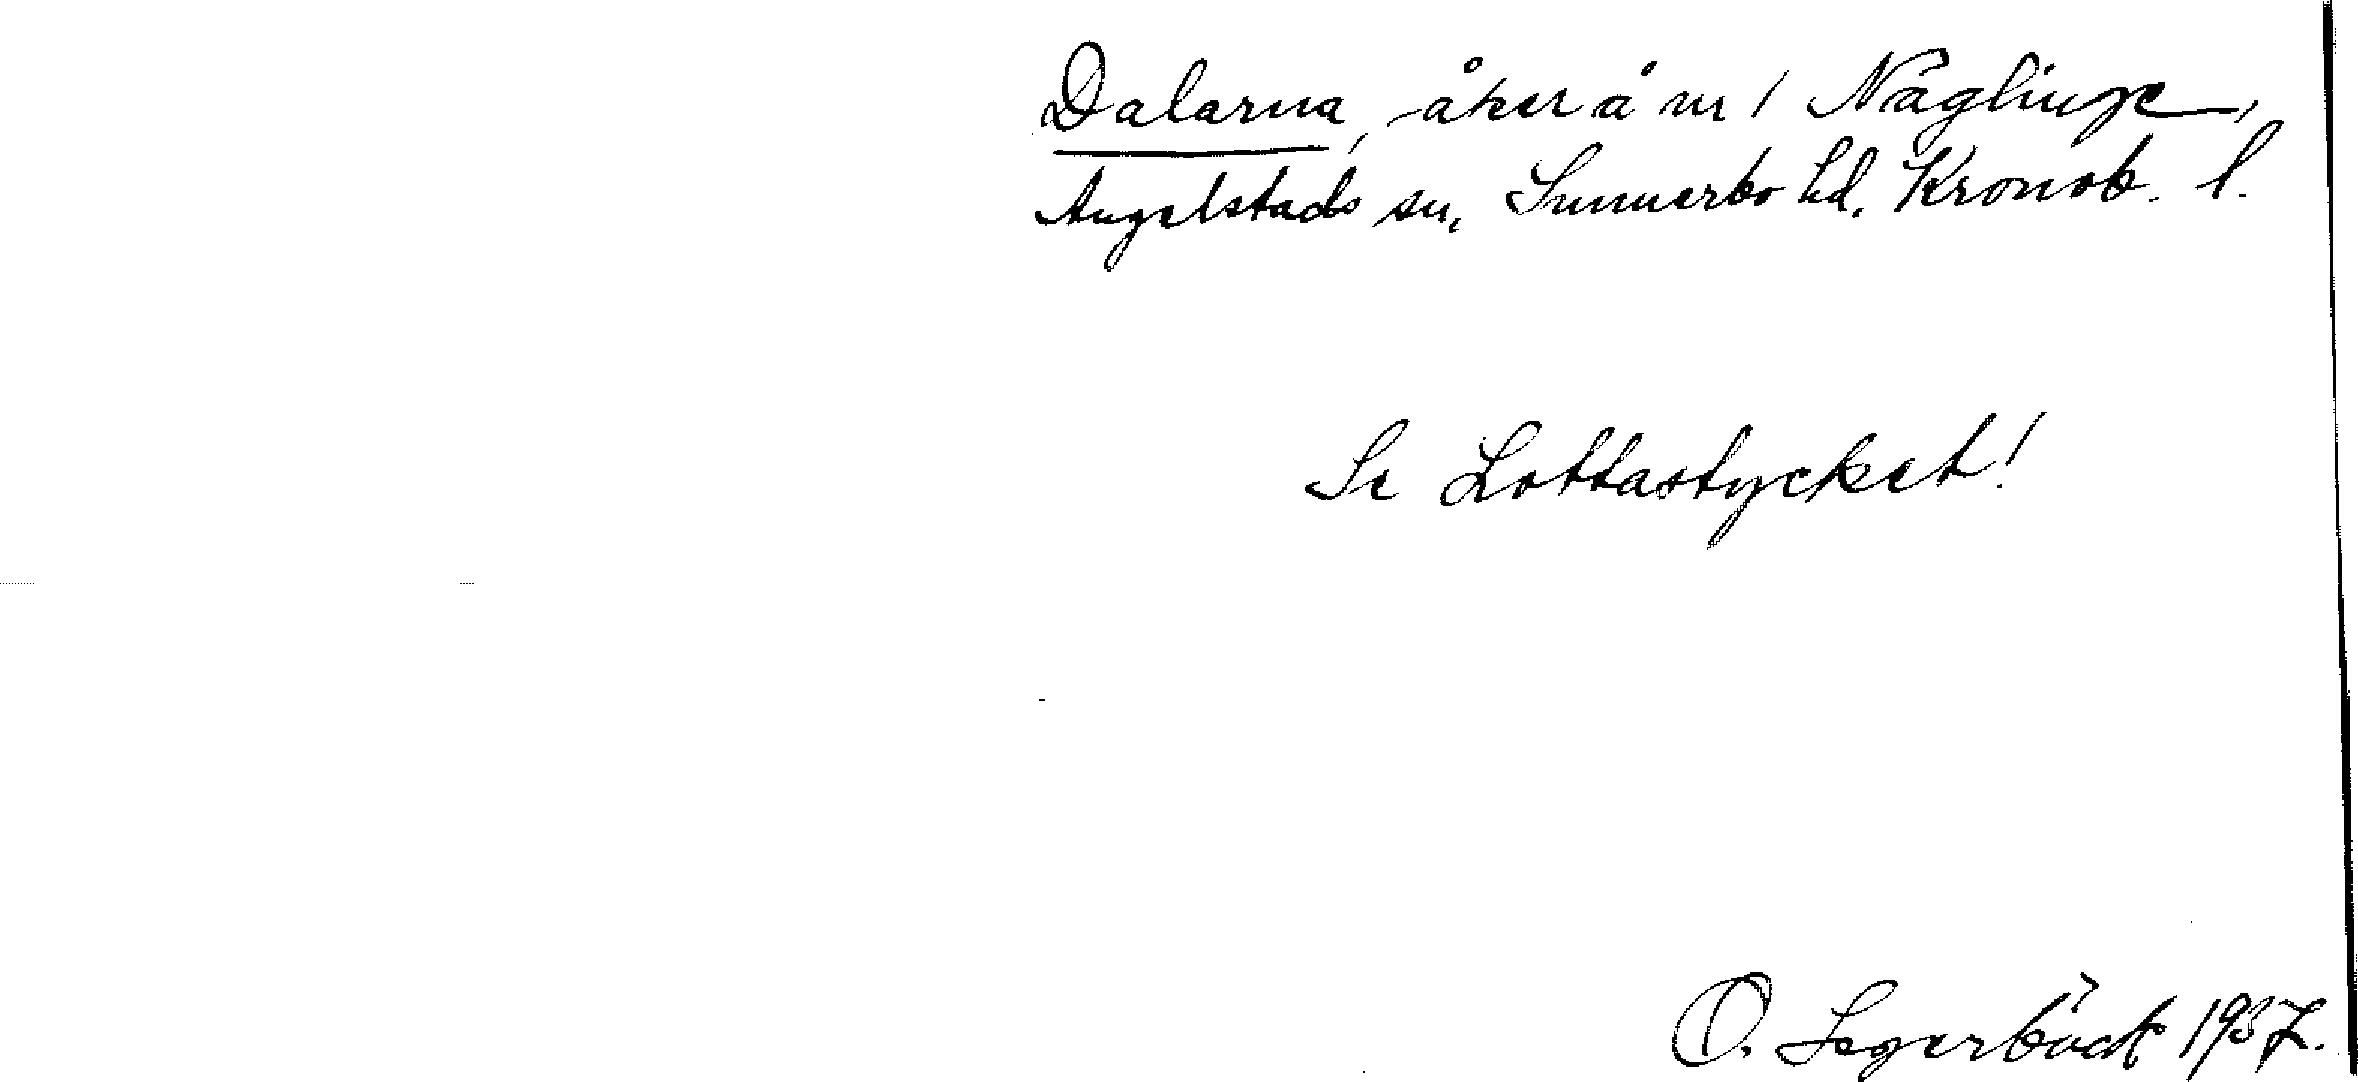 Dalarna, åker å nr 1 Näglinge,
Angelstads sn, Sunnerbo hd. Kronob. l.
Se Lottastycket!
O. Segerbäck 1937.